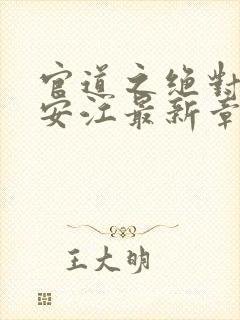 官道之绝对
安江最新章
王大明